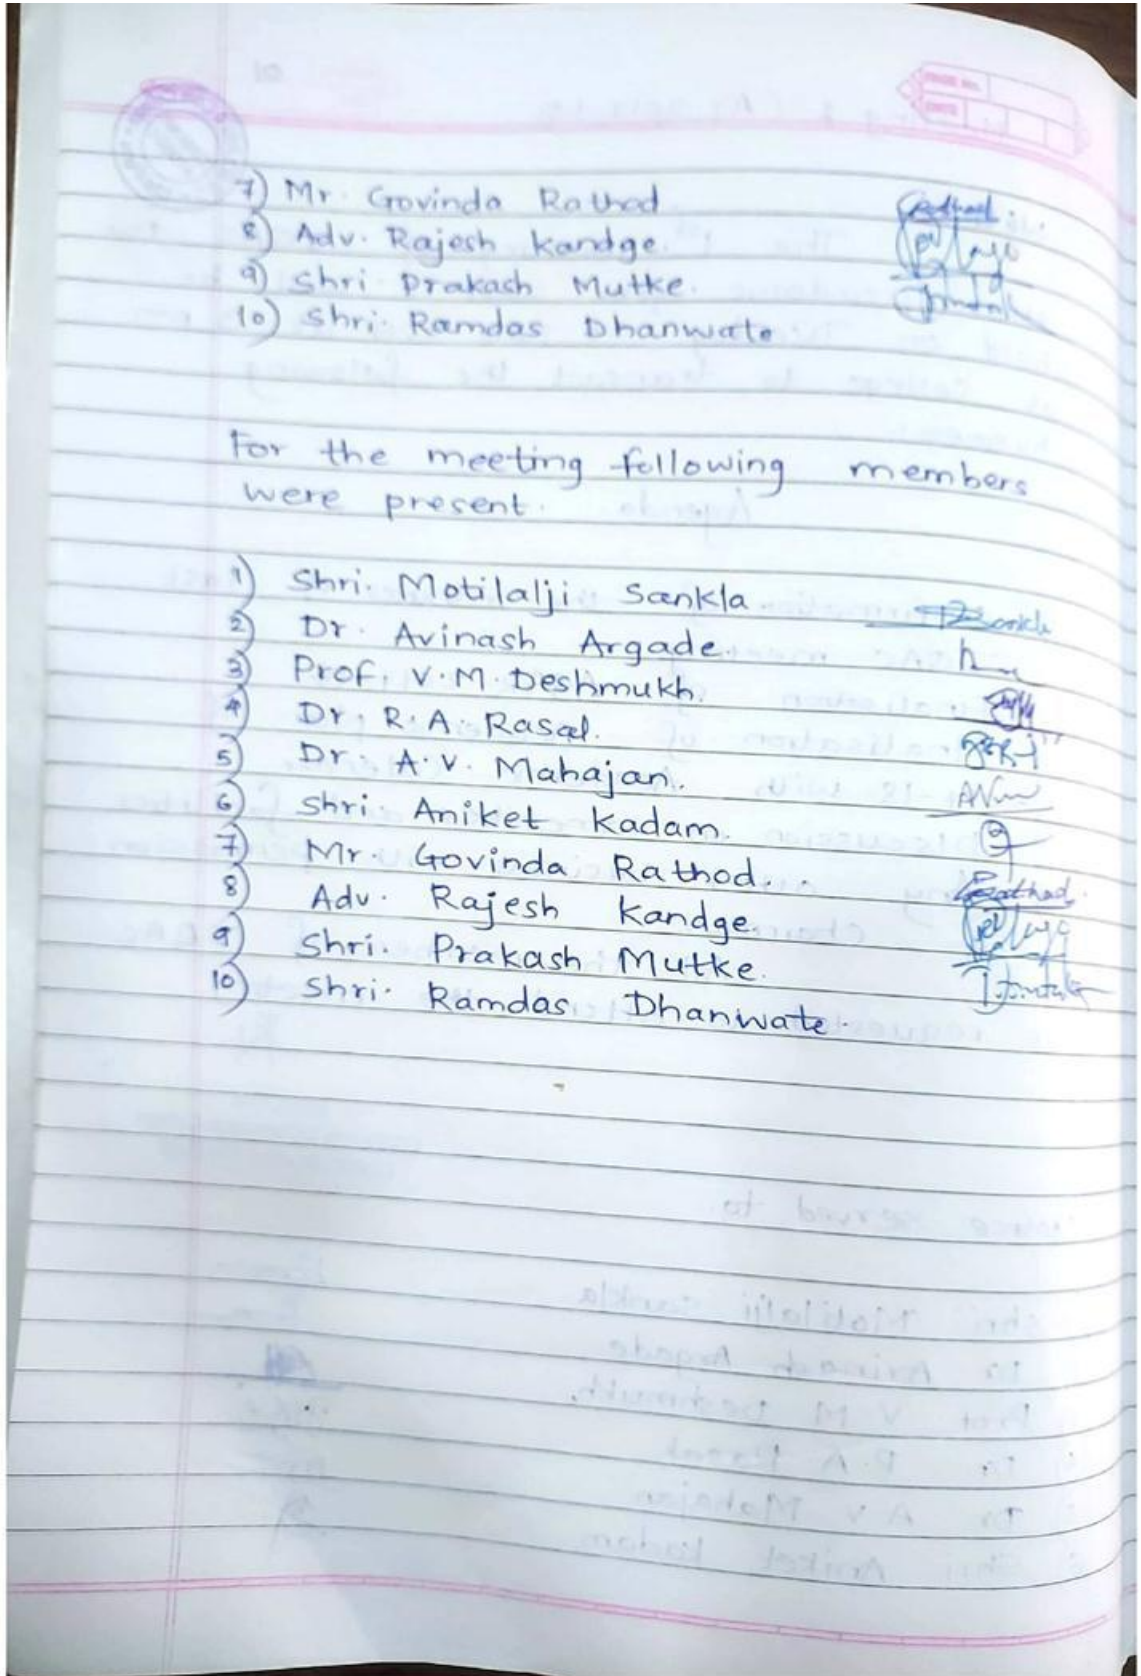 7) Mr. Govinda Rathod
8) Adv. Rajesh Kandge.
9) Shri. Prakash Mutke.
10) Shri. Ramdas Dhanwate
For the meeting following members
were present.
1) Shri. Motilalji Sankla
2) Dr. Avinash Argade.
3) Prof. V.M. Deshmukh.
4) Dr. R.A. Rasal.
5) Dr. A.V. Mahajan.
6) Shri. Aniket Kadam.
7) Mr. Govinda Rathod.
8) Adv. Rajesh Kandge.
9) Shri. Prakash Mutke.
10) Shri. Ramdas Dhanwate.